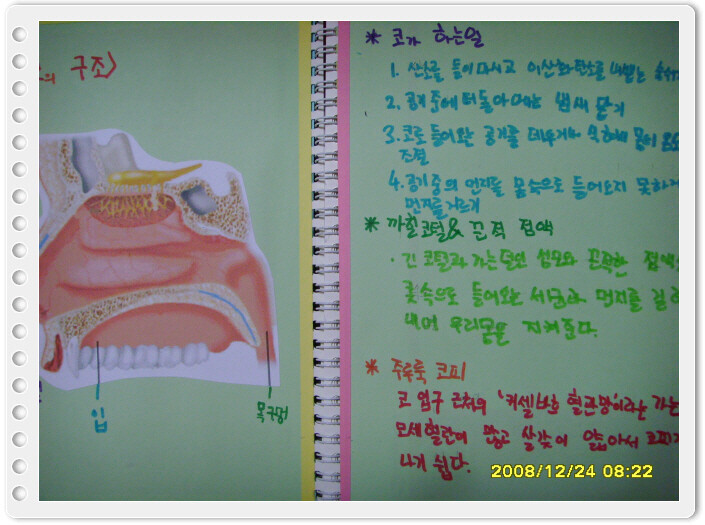 의 구조>
입
목구멍
* 코가 하는일
1. 산소를 들이마시고 이산화탄소를 내뱉는
2. 공기중에 떠돌아다니는 냄새 맡기
3. 코로 들어온 공기를 데우거나 식혀서 몸의
조절
4. 공기중의 먼지를 몸속으로 들어오지 못하게
먼지를 거르기
* 까칠코털& 끈적 점액
· 긴 코털과 가는털인 섬모와 끈끈한 점액
콧속으로 들어오는 세균과 먼지를 걸러
내어 우리몸은 지켜준다.
* 주루룩 코피
코 입구 근처의 '키셀바흐 혈관망'이라는 가는
모세혈관이 많고 살갗이 얇아서 코피가
나기 쉽다.
2008/12/24 08:22